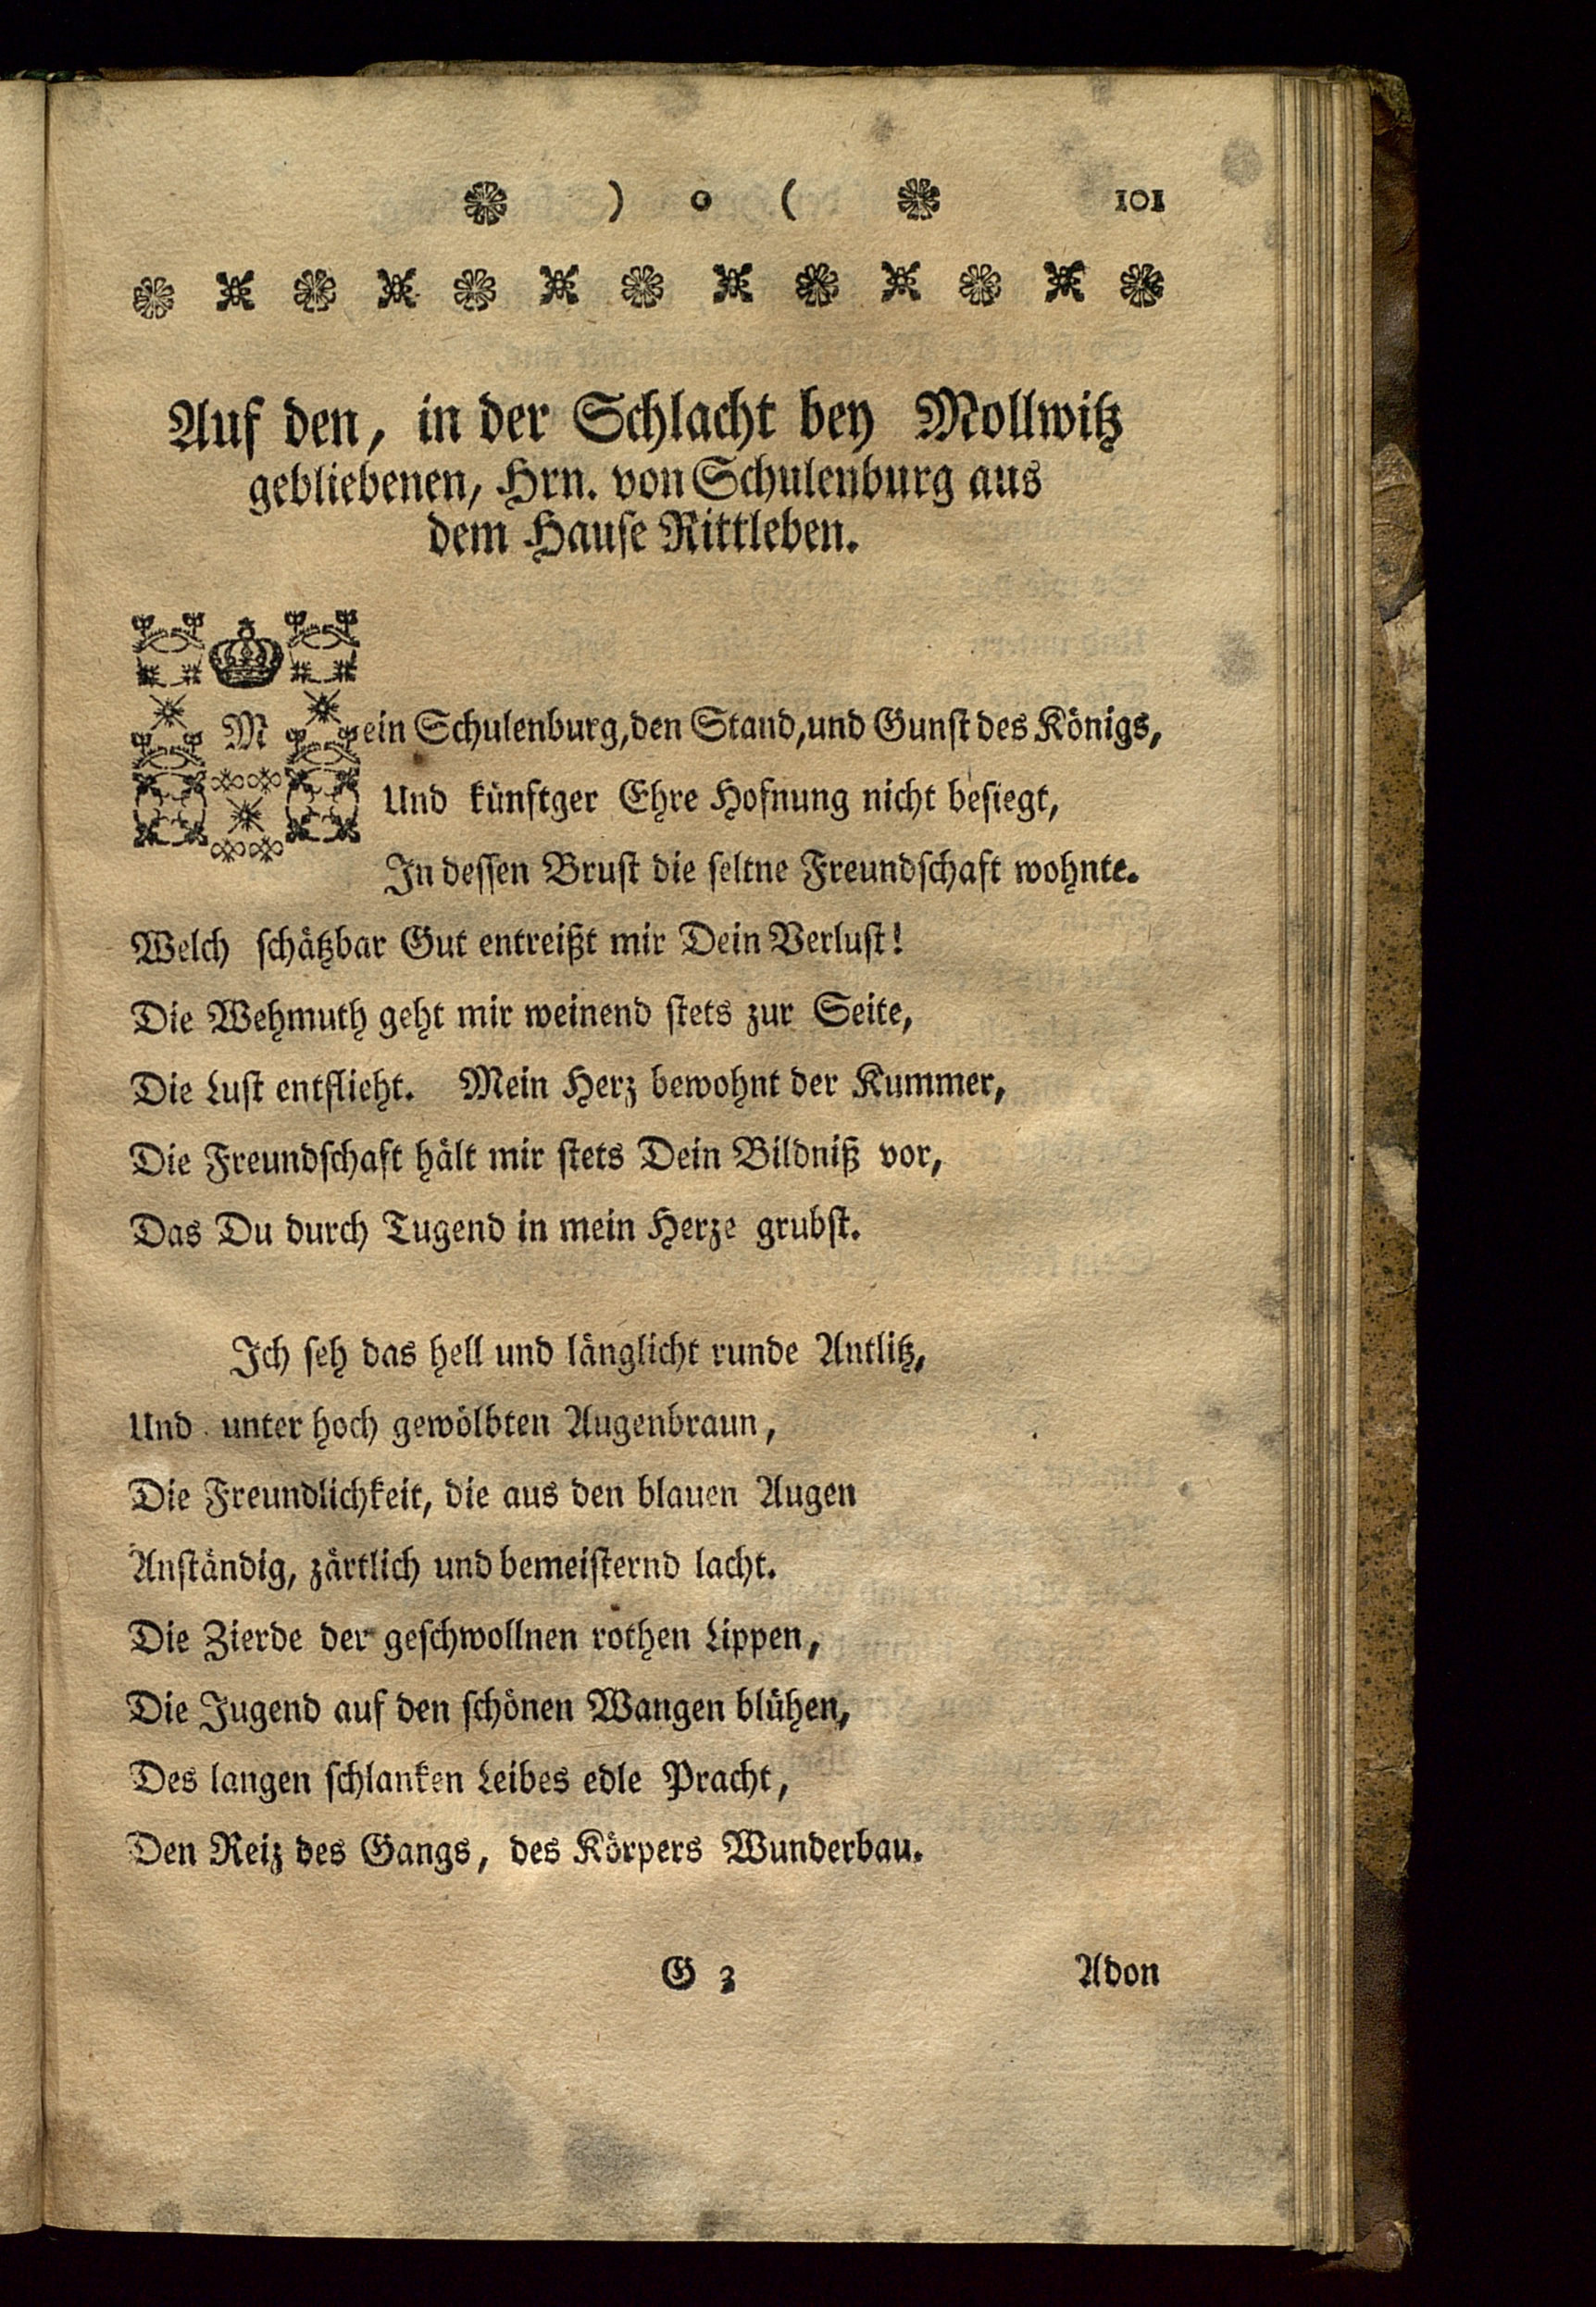 ) o ( 101
Auf den, in der Schlacht bey Mollwitz
gebliebenen, Hrn. von Schulenburg aus
dem Hauſe Rittleben.
Mein Schulenburg, den Stand, und Gunſt des Königs,
Und künftger Ehre Hofnung nicht beſiegt,
In deſſen Bruſt die ſeltne Freundſchaft wohnte.
Welch ſchätzbar Gut entreißt mir Dein Verluſt!
Die Wehmuth geht mir weinend ſtets zur Seite,
Die Luſt entflieht. Mein Herz bewohnt der Kummer,
Die Freundſchaft hält mir ſtets Dein Bildniß vor,
Das Du durch Tugend in mein Herze grubſt.
Ich ſeh das hell und länglicht runde Antlitz,
Und unter hoch gewölbten Augenbraun,
Die Freundlichkeit, die aus den blauen Augen
Anſtändig, zärtlich und bemeiſternd lacht.
Die Zierde der geſchwollnen rothen Lippen,
Die Jugend auf den ſchönen Wangen blühen,
Des langen ſchlanken Leibes edle Pracht,
Den Reiz des Gangs, des Körpers Wunderbau.
G 3 Adon